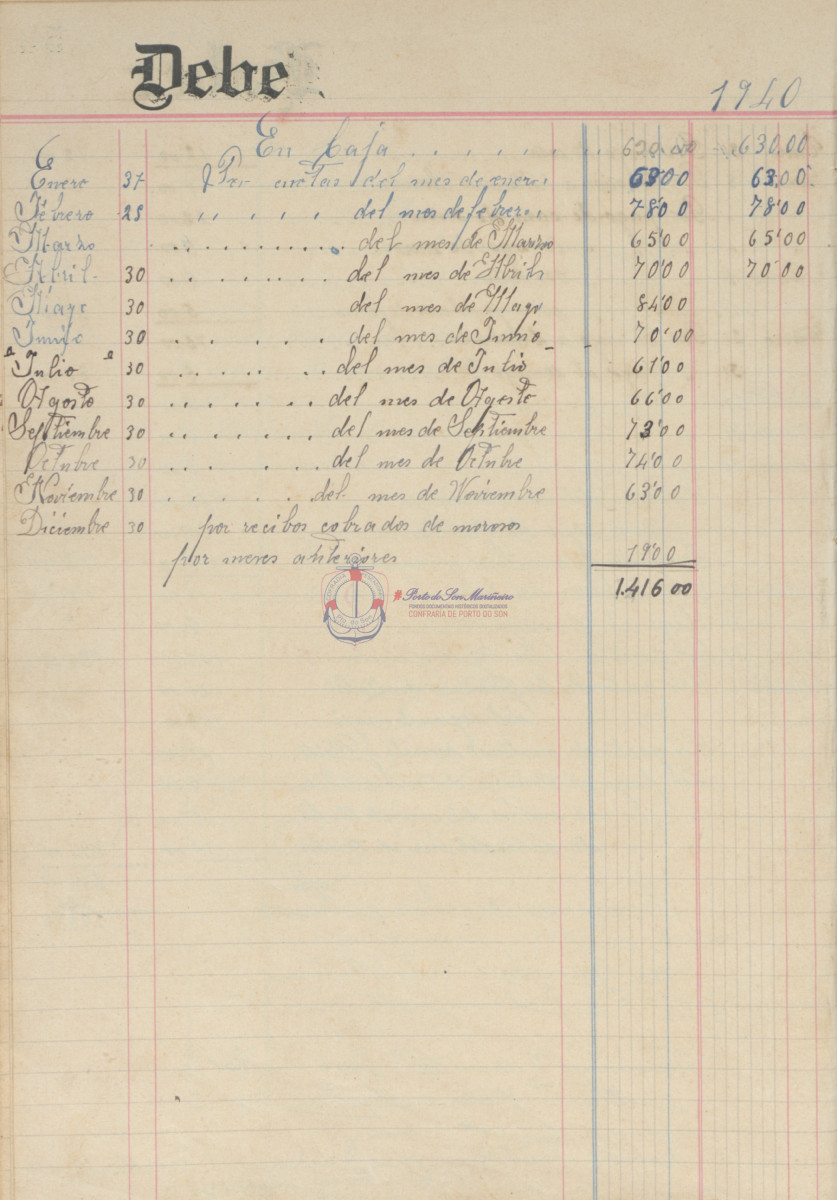 Debe 1940
En Caja . . . . . . . . 630.00 630.00
Enero 37 Por cuotas del mes de enero 63'00 63.00
Febrero 28 " . . . . del mes de febrero 78'00 78'00
Marzo . . . . . . . . . . del mes de Marzo 65'00 65'00
Abril 30 . . . . . . . . del mes de Abril 70'00 70'00
Mayo 30 del mes de Mayo 84'00
Junio 30 . . . . . . del mes de Junio 70'00
Julio 30 . . . . . . del mes de Julio 61'00
Agosto 30 . . . . . . del mes de Agosto 66'00
Septiembre 30 . . . . . . . del mes de Septiembre 73'00
Octubre 30 . . . . . . del mes de Octubre 74'00
Noviembre 30 . . . . . . del mes de Noviembre 63'00
Diciembre 30 por recibos cobrados de morosos
por meses anteriores 19'00
1.416 00
#Porto do Son Mariñeiro
FONDOS DOCUMENTAIS HISTÓRICOS DIXITALIZADOS
CONFRARÍA DE PORTO DO SON